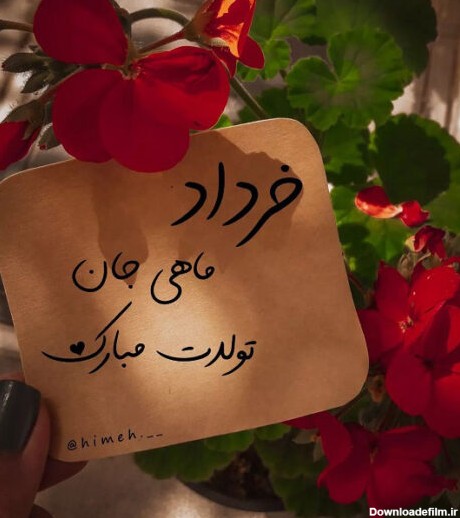 خرداد
ماهی جان
تولدت مبارک
@himeh.__
Downloadefilm.ir